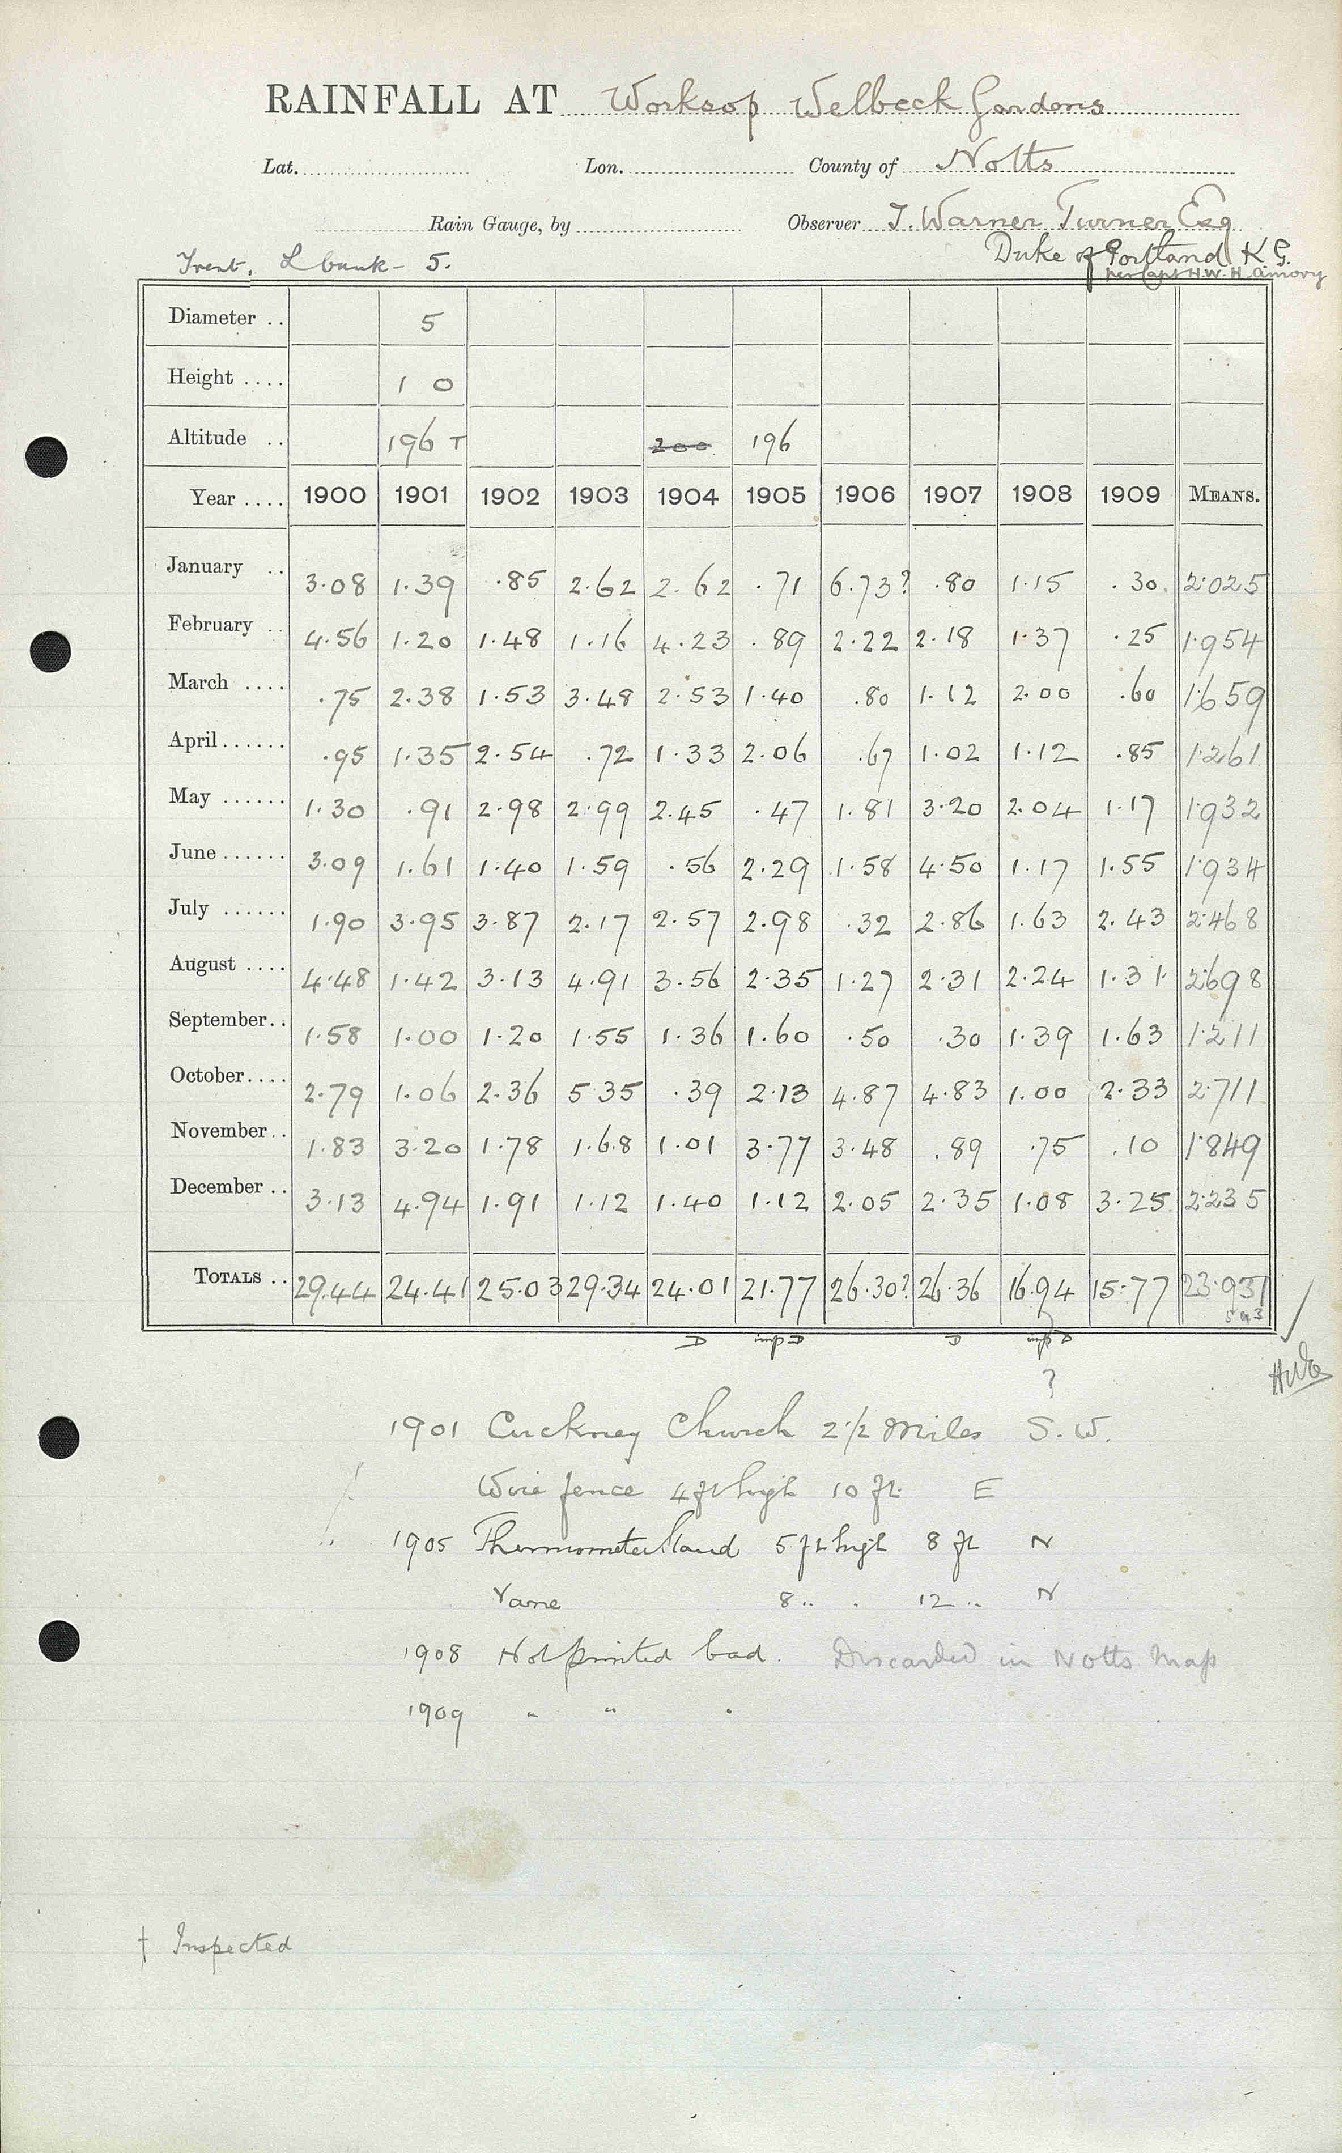 RAINFALL AT Worksop Welbeck Gardens
Lat. Lon. County of Notts
Rain Gauge, by Observer T. Warner Turner Esq
Trent, L bank - 5. Duke of Portland K G.
per Capt H.W.H. Amory
Diameter .. 5
Height .... 1 0
Altitude .. 196 T 200 196
Year .... 1900 1901 1902 1903 1904 1905 1906 1907 1908 1909 MEANS.
January .. 3.08 1.39 .85 2.62 2.62 .71 6.73? .80 1.15 .30 2.025
February .. 4.56 1.20 1.48 1.16 4.23 .89 2.22 2.18 1.37 .25 1.954
March .... .75 2.38 1.53 3.48 2.53 1.40 .80 1.12 2.00 .60 1.659
April ...... .95 1.35 2.54 .72 1.33 2.06 .67 1.02 1.12 .85 1.261
May ...... 1.30 .91 2.98 2.99 2.45 .47 1.81 3.20 2.04 1.17 1.932
June ...... 3.09 1.61 1.40 1.59 .56 2.29 1.58 4.50 1.17 1.55 1.934
July ...... 1.90 3.95 3.87 2.17 2.57 2.98 .32 2.86 1.63 2.43 2.468
August .... 4.48 1.42 3.13 4.91 3.56 2.35 1.27 2.31 2.24 1.31 2.698
September.. 1.58 1.00 1.20 1.55 1.36 1.60 .50 .30 1.39 1.63 1.211
October.... 2.79 1.06 2.36 5.35 .39 2.13 4.87 4.83 1.00 2.33 2.711
November.. 1.83 3.20 1.78 1.68 1.01 3.77 3.48 .89 .75 .10 1.849
December .. 3.13 4.94 1.91 1.12 1.40 1.12 2.05 2.35 1.08 3.25 2.235
TOTALS .. 29.44 24.41 25.03 29.34 24.01 21.77 26.30? 26.36 16.94 15.77 23.937
D imp D D imp D
?
1901 Cuckney Church 2 1/2 Miles S. W.
Wire fence 4 ft high 10 ft. E
1905 Thermometer Stand 5 ft high 8 ft N
Vane 8 .. . 12 .. N
1908 Not printed bad. Discarded in Notts Map
1909 " " "
† Inspected